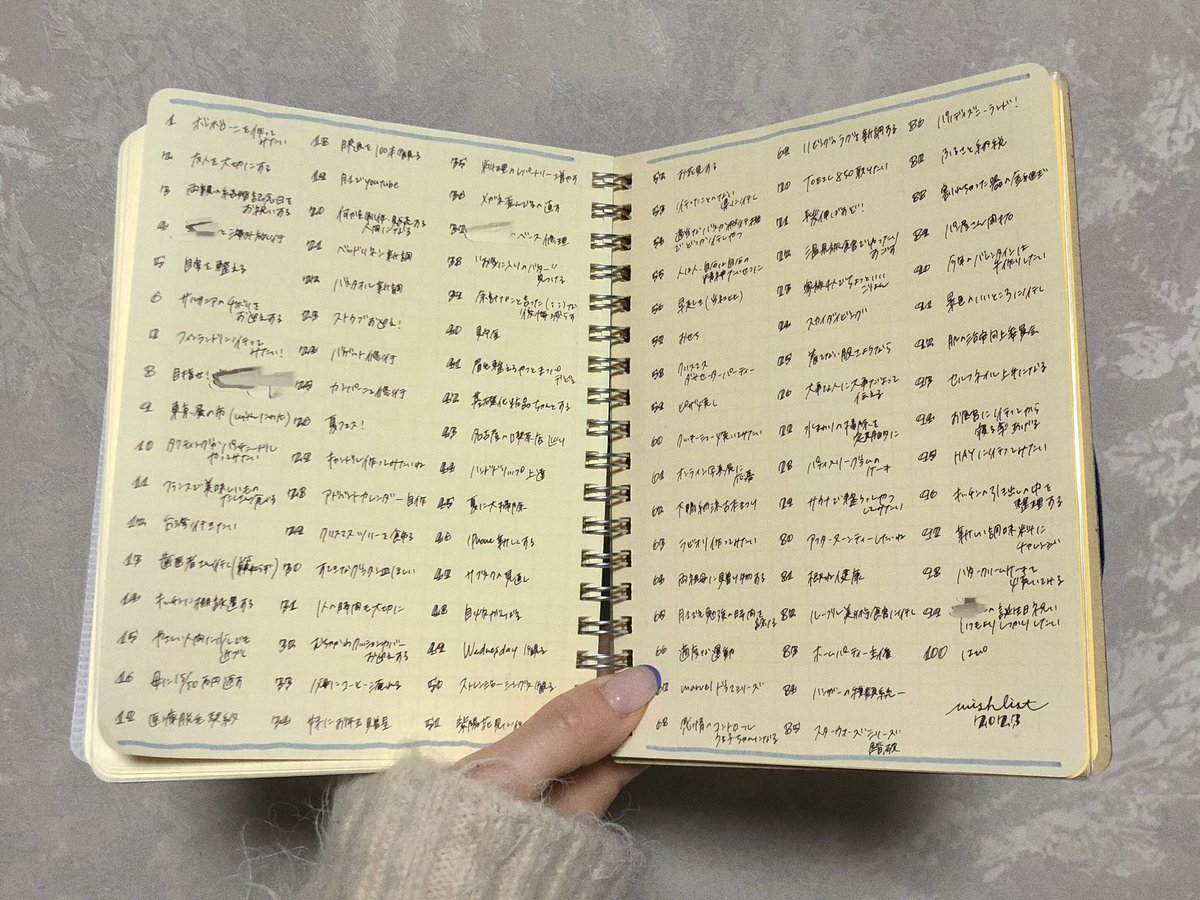 1 ボンボローニを作って
みたい
2 友人を大切にする
3 両親の結婚記念日を
お祝いする
4 と海外旅行
5 自律を整える
6 サルカニアの
お迎えする
7 フィンランドに行って
みたい!
8 目指せ!
9 東京蚤の市
10 タフティングかパンチニードル
やってみたい
11 フランスで美味しいもの
たくさん食べる
12 台湾行きたい
13 歯医者さん行く
14 キッチンに棚設置する
15 やさしい人間に少しでも
近づく
16 母に
17 医療脱毛契約
18 映画を100本観る
19 月1でyoutube
20 何かを制作・販売する
人間になる
21 ベッドリネン新調
22 バスタオル新調
23 ストウブお迎え!
24 バゲット修行
25 カンパーニュ修行
26 夏フェス!
27 キャンドル作ってみたいね
28 アドベントカレンダー自作
29 クリスマスツリーを飾る
30 オーバルなグラタン皿ほしい
31 1人の時間を大切に
32 クッションカバー
お迎えする
33 コーヒー淹れる
34 妹にお年玉贈呈
35 料理のレパートリー増やす
36 メガネ
37 のベンス修理
38 お気に入りのバター
見つける
39 余計なこと言った
40 貯金
41 眉を整える
42 基礎化粧品ちゃんとする
43 名古屋の喫茶店巡り
44 ハンドドリップ上達
45 夏に大掃除
46 iPhone新しくする
47 サブスクの見直し
48 自炊がんばる
49 Wednesday 観る
50 ストレンジャーシングス観る
51 紫陽花見に行く
52 お花見する
53 行ったことのない
県に行く
54
55 人は人、自分は自分の
精神でたいせつに
56 早起き
57 おせち
58 クリスマス
ディナーパーティー
59 ピザ焼く
60 クッキーシュー焼いてみたい
61 オンライン写真展に
応募
62 下鴨納涼古本まつり
63 ラビオリ作ってみたい
64 両祖母に贈り物する
65 月1でも勉強の時間を
設ける
66 適度な運動
67 marvelドラマシリーズ
68 感情のコントロール
69 リビングのラグを新調する
70 TOEIC 850取りたい
71 推し
72 温泉旅館でゆったり
73 家族4人でちょっといい
ごはん
74 スカイダイビング
75 着てない服さようなら
76 大事な人に大事だよって
伝える
77 水まわりの掃除を
定期的に
78 パティスリーグラムの
ケーキ
79 サウナで整うってやつ
してみたい
80 アフターヌーンティーしたいね
81 概ね健康
82 ルーブル美術館に行く
83 ホームパーティー主催
84 ハンガーの種類統一
85 スターウォーズシリーズ
踏破
86 パリディズニーランド!
87 ふるさと納税
88 割れちゃった器の金継ぎ
89 パン屋さん開拓
90 今年のバレンタインは
手作りしたい
91 景色のいいところに行く
92 肌の治安向上委員会
93 セルフネイル上手になる
94 お風呂に
95 HAYに行ってみたい
96 キッチンの引き出しの中を
整理する
97 新しい調味料に
チャレンジ
98 バタークリームケーキ
99 の誕生日祝い
いつもよりしっかりしたい
100 ひみつ
wishlist
2023